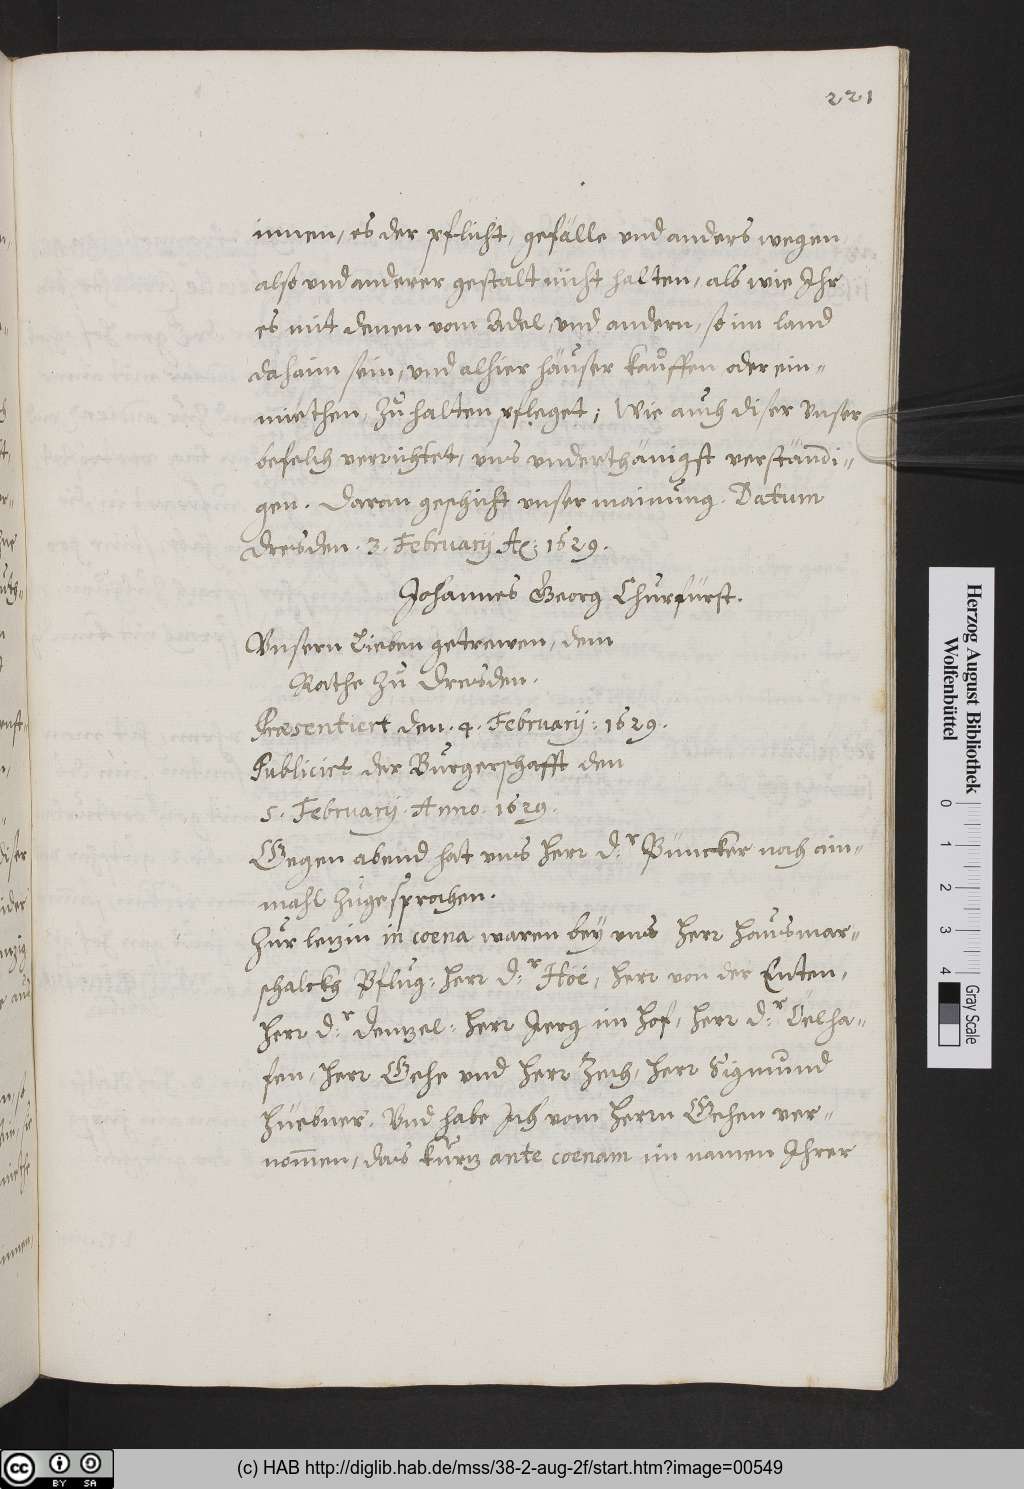 221
innen, es der pflicht, gefälle und anders wegen
also und anderer gestalt nicht halten, als wie Ihr
es mit denen vom Adel, und andern, so im land
dahaim sein, und alhier häuser kauffen oder ein-
miethen, zu halten pfleget; Wie auch diser Unser
befelch verrichtet, uns underthänigst verständi-
gen. Daran geschicht unser mainung. Datum
Dresden. 3. Februarij Ao: 1629.
Johannes Georg Churfürst.
Unsern Lieben getrewen, dem
Rathe zu Dresden.
Præsentiert den. 4. Februarij: 1629.
Publicirt der Burgerschafft den
5. Februarij. Anno. 1629.
Gegen abend hat uns Herr D:r Püncker noch ain-
mahl zugesprochen.
Zur lezin in coena waren bey uns Herr Hausmar-
schalckh Pflug: Herr D:r Höe, Herr von der Enten,
Herr D:r Denzel: Herr Jerg im Hof, Herr D:r Öelhä-
fen, Herr Gehe und Herr Zech, Herr Sigmund
Hüebner. Und habe Ich vom Herrn Gehen ver-
nommen, das kurz ante coenam im namen Ihrer
Herzog August Bibliothek
Wolfenbüttel
0 1 2 3 4
Gray Scale
cc BY SA
(c) HAB http://diglib.hab.de/mss/38-2-aug-2f/start.htm?image=00549